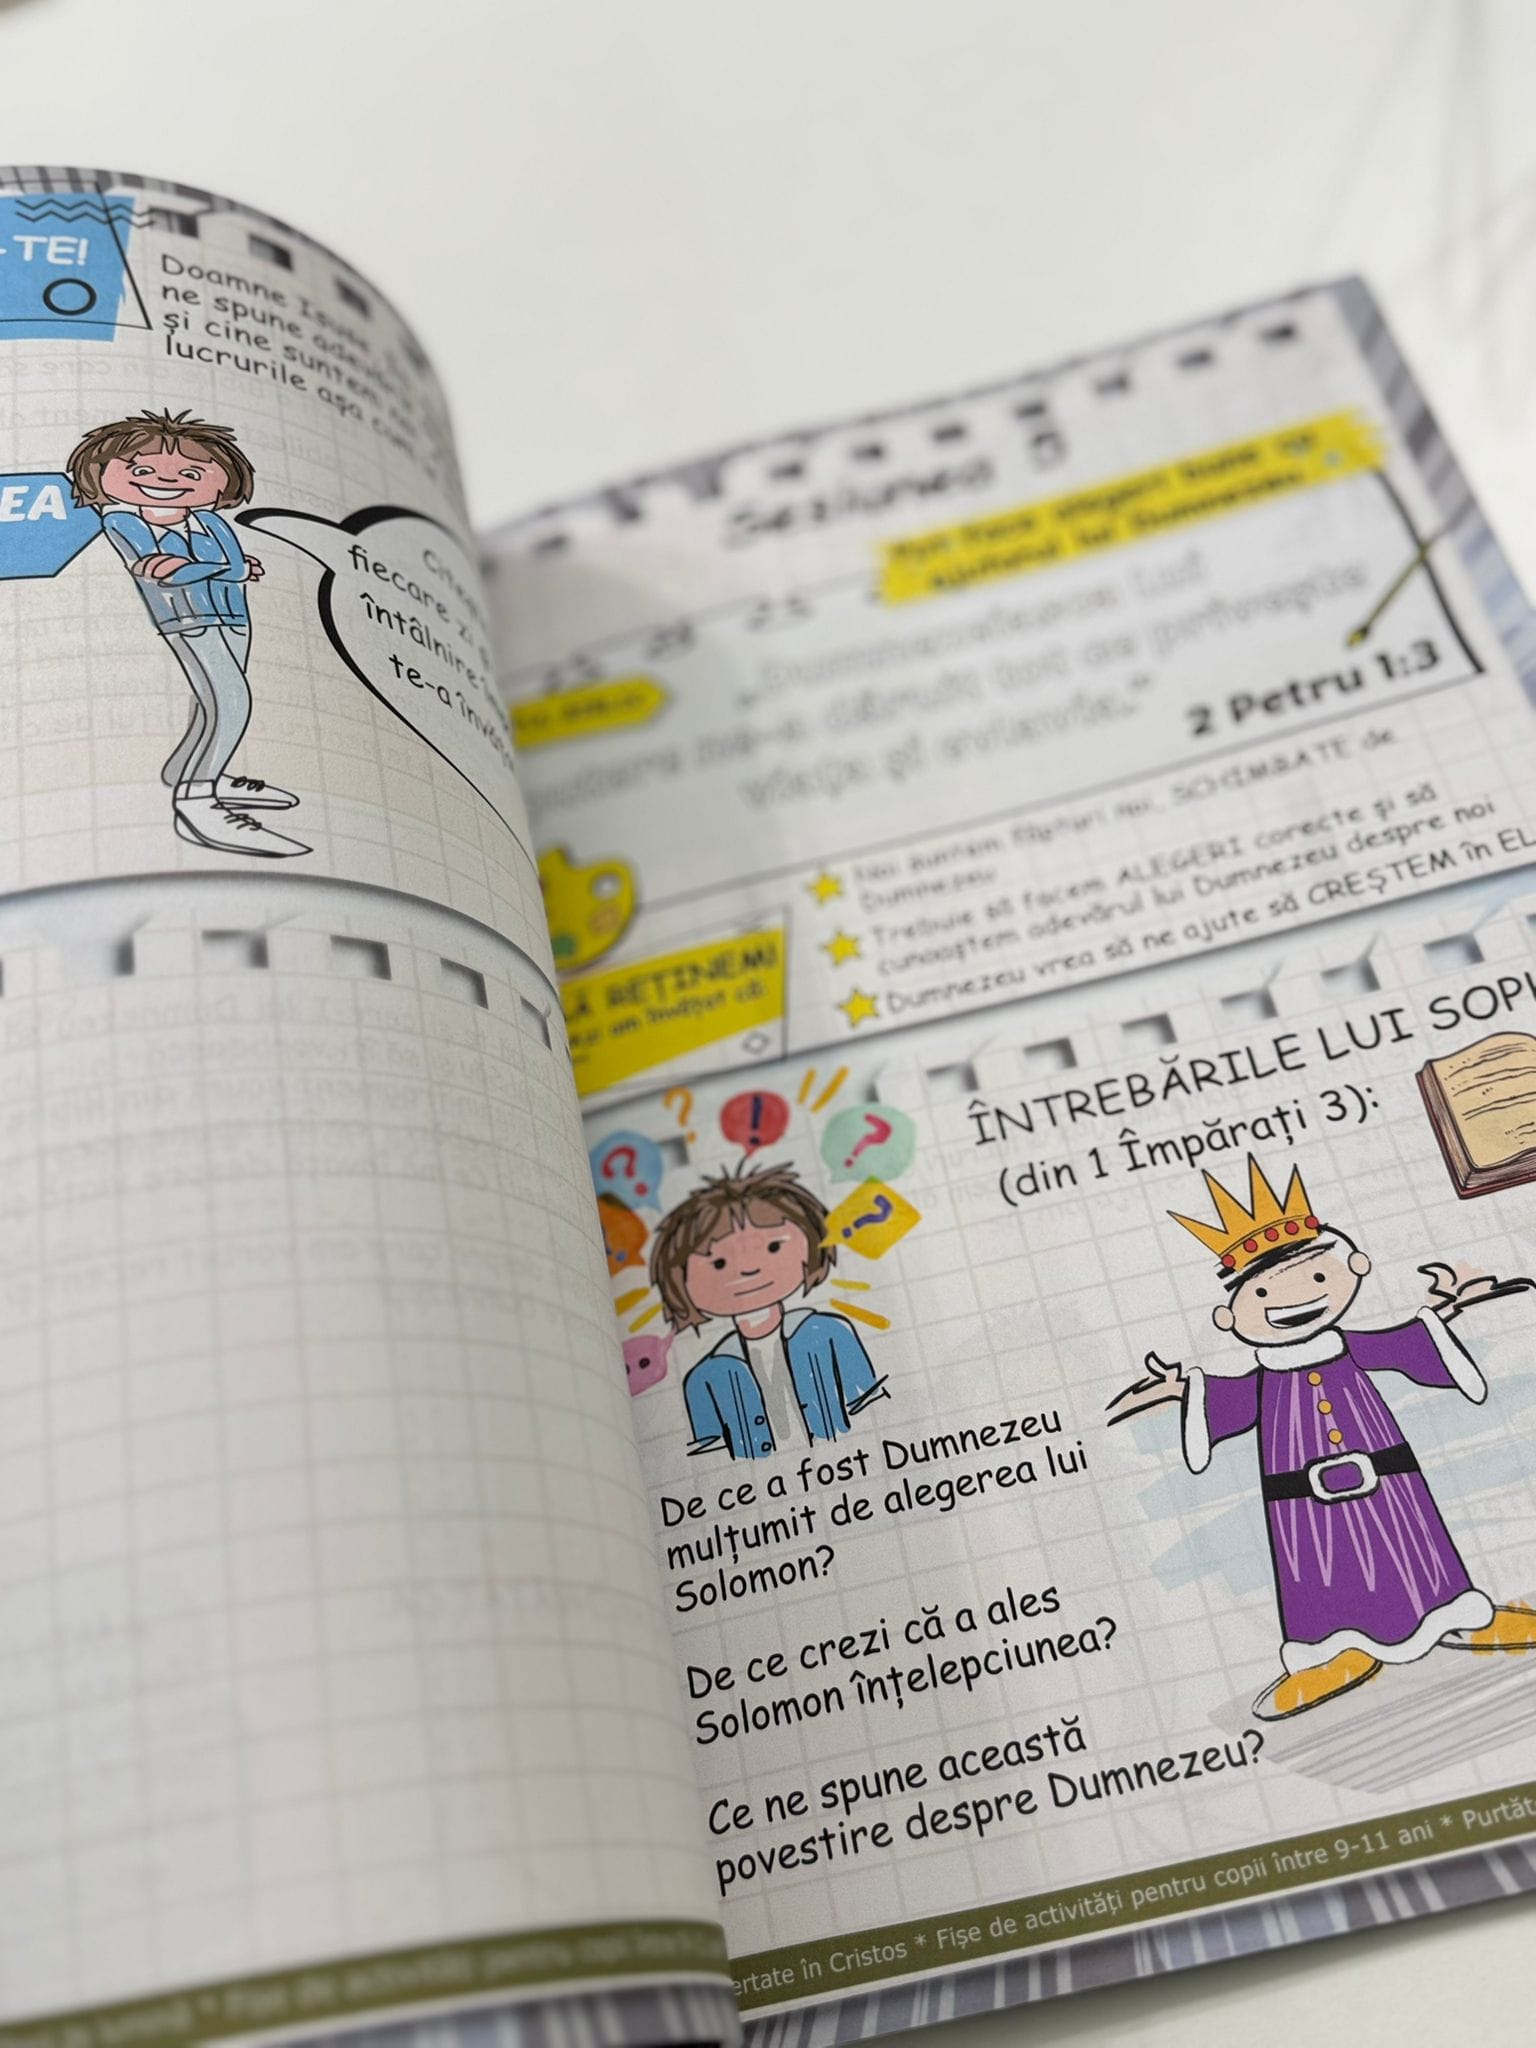 -TE!
Doamne Isuse
ne spune
și cine suntem
lucrurile așa cum
EA
fiecare zi
întâlnire
te-a
Sesiunea 5
Pot face alegeri bune cu
ajutorul lui Dumnezeu
„Dumnezeiasca Lui
putere ne-a dăruit tot ce privește
viața și evlavia.”
2 Petru 1:3
Noi suntem făpturi noi, SCHIMBATE de
Dumnezeu
Trebuie să facem ALEGERI corecte și să
cunoaștem adevărul lui Dumnezeu despre noi
Dumnezeu vrea să ne ajute să CREȘTEM în EL
REȚINEM!
am învățat că:
ÎNTREBĂRILE LUI
(din 1 Împărați 3):
De ce a fost Dumnezeu
mulțumit de alegerea lui
Solomon?
De ce crezi că a ales
Solomon înțelepciunea?
Ce ne spune această
povestire despre Dumnezeu?
ertate în Cristos * Fișe de activități pentru copii între 9-11 ani * Purtăt